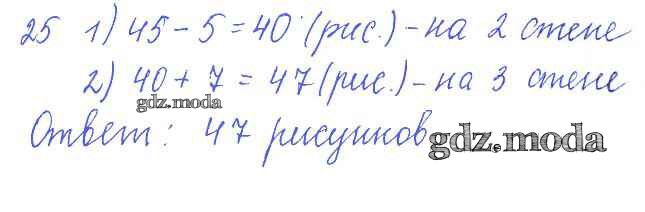 25 1) 45 - 5 = 40 (рис.) - на 2 стене
2) 40 + 7 = 47 (рис.) - на 3 стене
gdz.moda
Ответ: 47 рисунков
gdz.moda